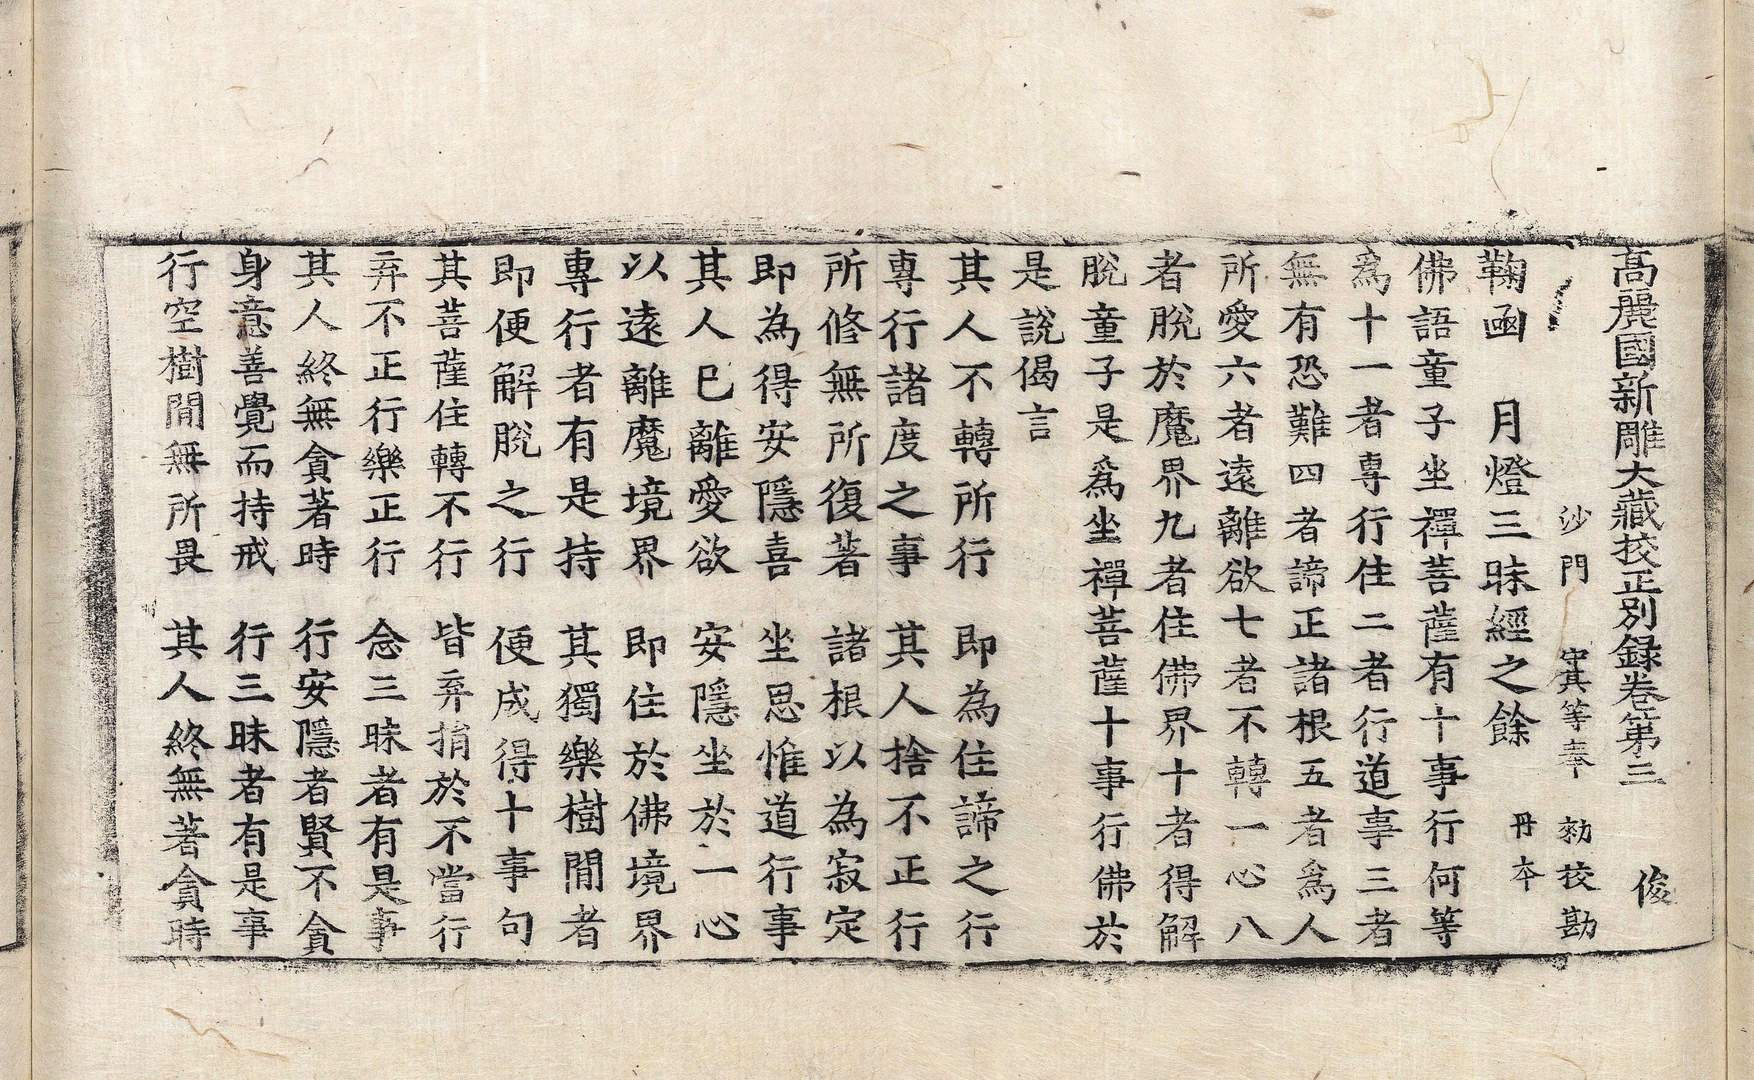 高麗國新雕大藏挍正別錄卷第三　俊
沙門　守其等奉　勑挍勘
鞠函　月燈三昧經之餘　丹本
佛語童子坐禪菩薩有十事行何等
爲十一者專行住二者行道事三者
無有恐難四者諦正諸根五者爲人
所愛六者遠離欲七者不轉一心八
者脫於魔界九者住佛界十者得解
脫童子是爲坐禪菩薩十事行佛於
是說偈言
其人不轉所行　即為住諦之行
專行諸度之事　其人捨不正行
所修無所復著　諸根以為寂定
即為得安隱喜　坐思惟道行事
其人已離愛欲　安隱坐於一心
以遠離魔境界　即住於佛境界
專行者有是持　其獨樂樹閒者
即便解脫之行　便成得十事句
其菩薩住轉不行　皆弃捐於不當行
弃不正行樂正行　念三昧者有是事
其人終無貪著時　行安隱者賢不貪
身意善覺而持戒　行三昧者有是事
行空樹閒無所畏　其人終無著貪時